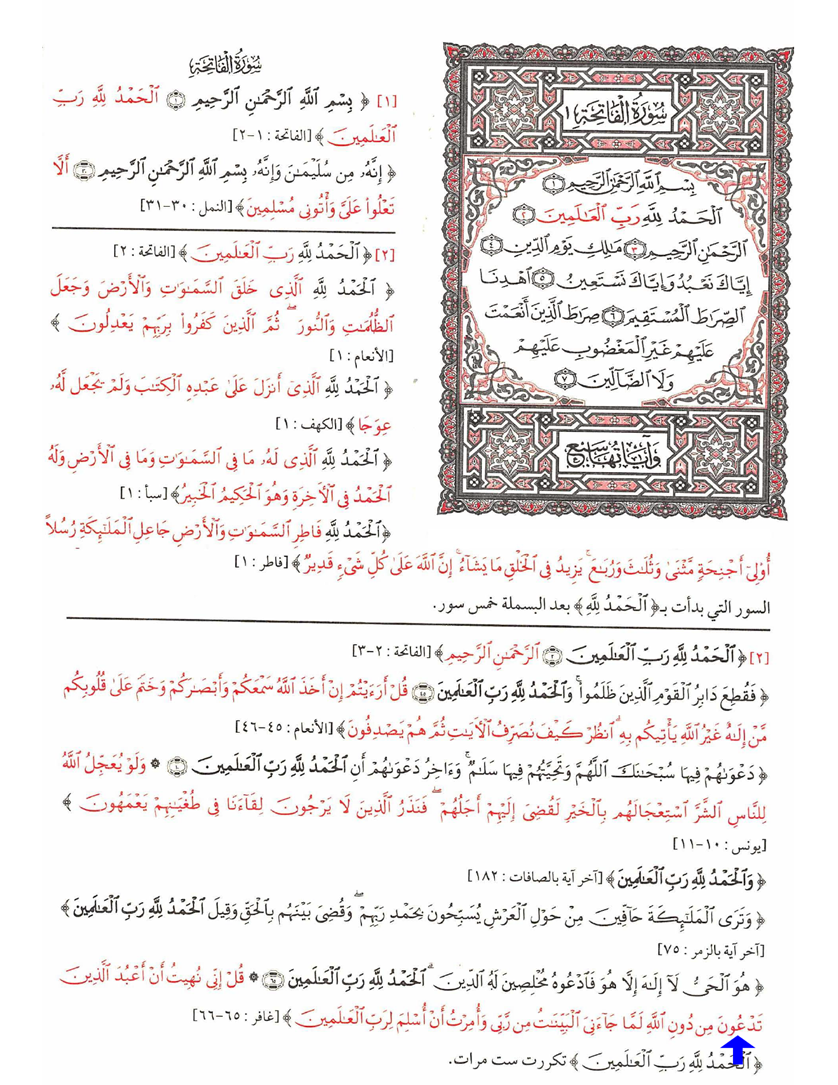 سُورَةُ الْفَاتِحَةِ
[١] ﴿ بِسْمِ ٱللَّهِ ٱلرَّحْمَٰنِ ٱلرَّحِيمِ ۝١ ٱلْحَمْدُ لِلَّهِ رَبِّ
ٱلْعَٰلَمِينَ ﴾ [الفاتحة : ١-٢]
﴿ إِنَّهُۥ مِن سُلَيْمَٰنَ وَإِنَّهُۥ بِسْمِ ٱللَّهِ ٱلرَّحْمَٰنِ ٱلرَّحِيمِ ۝٣٠ أَلَّا
تَعْلُوا۟ عَلَىَّ وَأْتُونِى مُسْلِمِينَ ﴾ [النمل : ٣٠-٣١]
[٢] ﴿ ٱلْحَمْدُ لِلَّهِ رَبِّ ٱلْعَٰلَمِينَ ﴾ [الفاتحة : ٢]
﴿ ٱلْحَمْدُ لِلَّهِ ٱلَّذِى خَلَقَ ٱلسَّمَٰوَٰتِ وَٱلْأَرْضَ وَجَعَلَ
ٱلظُّلُمَٰتِ وَٱلنُّورَ ۖ ثُمَّ ٱلَّذِينَ كَفَرُوا۟ بِرَبِّهِمْ يَعْدِلُونَ ﴾
[الأنعام : ١]
﴿ ٱلْحَمْدُ لِلَّهِ ٱلَّذِىٓ أَنزَلَ عَلَىٰ عَبْدِهِ ٱلْكِتَٰبَ وَلَمْ يَجْعَل لَّهُۥ
عِوَجَا ﴾ [الكهف : ١]
﴿ ٱلْحَمْدُ لِلَّهِ ٱلَّذِى لَهُۥ مَا فِى ٱلسَّمَٰوَٰتِ وَمَا فِى ٱلْأَرْضِ وَلَهُ
ٱلْحَمْدُ فِى ٱلْأَخِرَةِ وَهُوَ ٱلْحَكِيمُ ٱلْخَبِيرُ ﴾ [سبأ : ١]
﴿ ٱلْحَمْدُ لِلَّهِ فَاطِرِ ٱلسَّمَٰوَٰتِ وَٱلْأَرْضِ جَاعِلِ ٱلْمَلَٰٓئِكَةِ رُسُلًا
سُورَةُ الْفَاتِحَةِ ١
بِسْمِ ٱللَّهِ ٱلرَّحْمَٰنِ ٱلرَّحِيمِ ۝١
ٱلْحَمْدُ لِلَّهِ رَبِّ ٱلْعَٰلَمِينَ ۝٢
ٱلرَّحْمَٰنِ ٱلرَّحِيمِ ۝٣ مَٰلِكِ يَوْمِ ٱلدِّينِ ۝٤
إِيَّاكَ نَعْبُدُ وَإِيَّاكَ نَسْتَعِينُ ۝٥ ٱهْدِنَا
ٱلصِّرَٰطَ ٱلْمُسْتَقِيمَ ۝٦ صِرَٰطَ ٱلَّذِينَ أَنْعَمْتَ
عَلَيْهِمْ غَيْرِ ٱلْمَغْضُوبِ عَلَيْهِمْ
وَلَا ٱلضَّآلِّينَ ۝٧
وَآيَاتُهَا سَبْعٌ
أُو۟لِىٓ أَجْنِحَةٍ مَّثْنَىٰ وَثُلَٰثَ وَرُبَٰعَ ۚ يَزِيدُ فِى ٱلْخَلْقِ مَا يَشَآءُ ۚ إِنَّ ٱللَّهَ عَلَىٰ كُلِّ شَىْءٍ قَدِيرٌ ﴾ [فاطر : ١]
السور التي بدأت بـ﴿ ٱلْحَمْدُ لِلَّهِ ﴾ بعد البسملة خمس سور.
[٢] ﴿ ٱلْحَمْدُ لِلَّهِ رَبِّ ٱلْعَٰلَمِينَ ۝٢ ٱلرَّحْمَٰنِ ٱلرَّحِيمِ ﴾ [الفاتحة : ٢-٣]
﴿ فَقُطِعَ دَابِرُ ٱلْقَوْمِ ٱلَّذِينَ ظَلَمُوا۟ ۚ وَٱلْحَمْدُ لِلَّهِ رَبِّ ٱلْعَٰلَمِينَ ۝٤٥ قُلْ أَرَءَيْتُمْ إِنْ أَخَذَ ٱللَّهُ سَمْعَكُمْ وَأَبْصَٰرَكُمْ وَخَتَمَ عَلَىٰ قُلُوبِكُم
مَّنْ إِلَٰهٌ غَيْرُ ٱللَّهِ يَأْتِيكُم بِهِ ۗ ٱنظُرْ كَيْفَ نُصَرِّفُ ٱلْأَيَٰتِ ثُمَّ هُمْ يَصْدِفُونَ ﴾ [الأنعام : ٤٥-٤٦]
﴿ دَعْوَىٰهُمْ فِيهَا سُبْحَٰنَكَ ٱللَّهُمَّ وَتَحِيَّتُهُمْ فِيهَا سَلَٰمٌ ۚ وَءَاخِرُ دَعْوَىٰهُمْ أَنِ ٱلْحَمْدُ لِلَّهِ رَبِّ ٱلْعَٰلَمِينَ ۝١٠ ۞ وَلَوْ يُعَجِّلُ ٱللَّهُ
لِلنَّاسِ ٱلشَّرَّ ٱسْتِعْجَالَهُم بِٱلْخَيْرِ لَقُضِىَ إِلَيْهِمْ أَجَلُهُمْ ۖ فَنَذَرُ ٱلَّذِينَ لَا يَرْجُونَ لِقَآءَنَا فِى طُغْيَٰنِهِمْ يَعْمَهُونَ ﴾
[يونس : ١٠-١١]
﴿ وَٱلْحَمْدُ لِلَّهِ رَبِّ ٱلْعَٰلَمِينَ ﴾ [آخر آية بالصافات : ١٨٢]
﴿ وَتَرَى ٱلْمَلَٰٓئِكَةَ حَآفِّينَ مِنْ حَوْلِ ٱلْعَرْشِ يُسَبِّحُونَ بِحَمْدِ رَبِّهِمْ ۖ وَقُضِىَ بَيْنَهُم بِٱلْحَقِّ وَقِيلَ ٱلْحَمْدُ لِلَّهِ رَبِّ ٱلْعَٰلَمِينَ ﴾
[آخر آية بالزمر : ٧٥]
﴿ هُوَ ٱلْحَىُّ لَآ إِلَٰهَ إِلَّا هُوَ فَٱدْعُوهُ مُخْلِصِينَ لَهُ ٱلدِّينَ ۗ ٱلْحَمْدُ لِلَّهِ رَبِّ ٱلْعَٰلَمِينَ ۝٦٥ ۞ قُلْ إِنِّى نُهِيتُ أَنْ أَعْبُدَ ٱلَّذِينَ
تَدْعُونَ مِن دُونِ ٱللَّهِ لَمَّا جَآءَنِىَ ٱلْبَيِّنَٰتُ مِن رَّبِّى وَأُمِرْتُ أَنْ أُسْلِمَ لِرَبِّ ٱلْعَٰلَمِينَ ﴾ [غافر : ٦٥-٦٦]
﴿ ٱلْحَمْدُ لِلَّهِ رَبِّ ٱلْعَٰلَمِينَ ﴾ تكررت ست مرات.